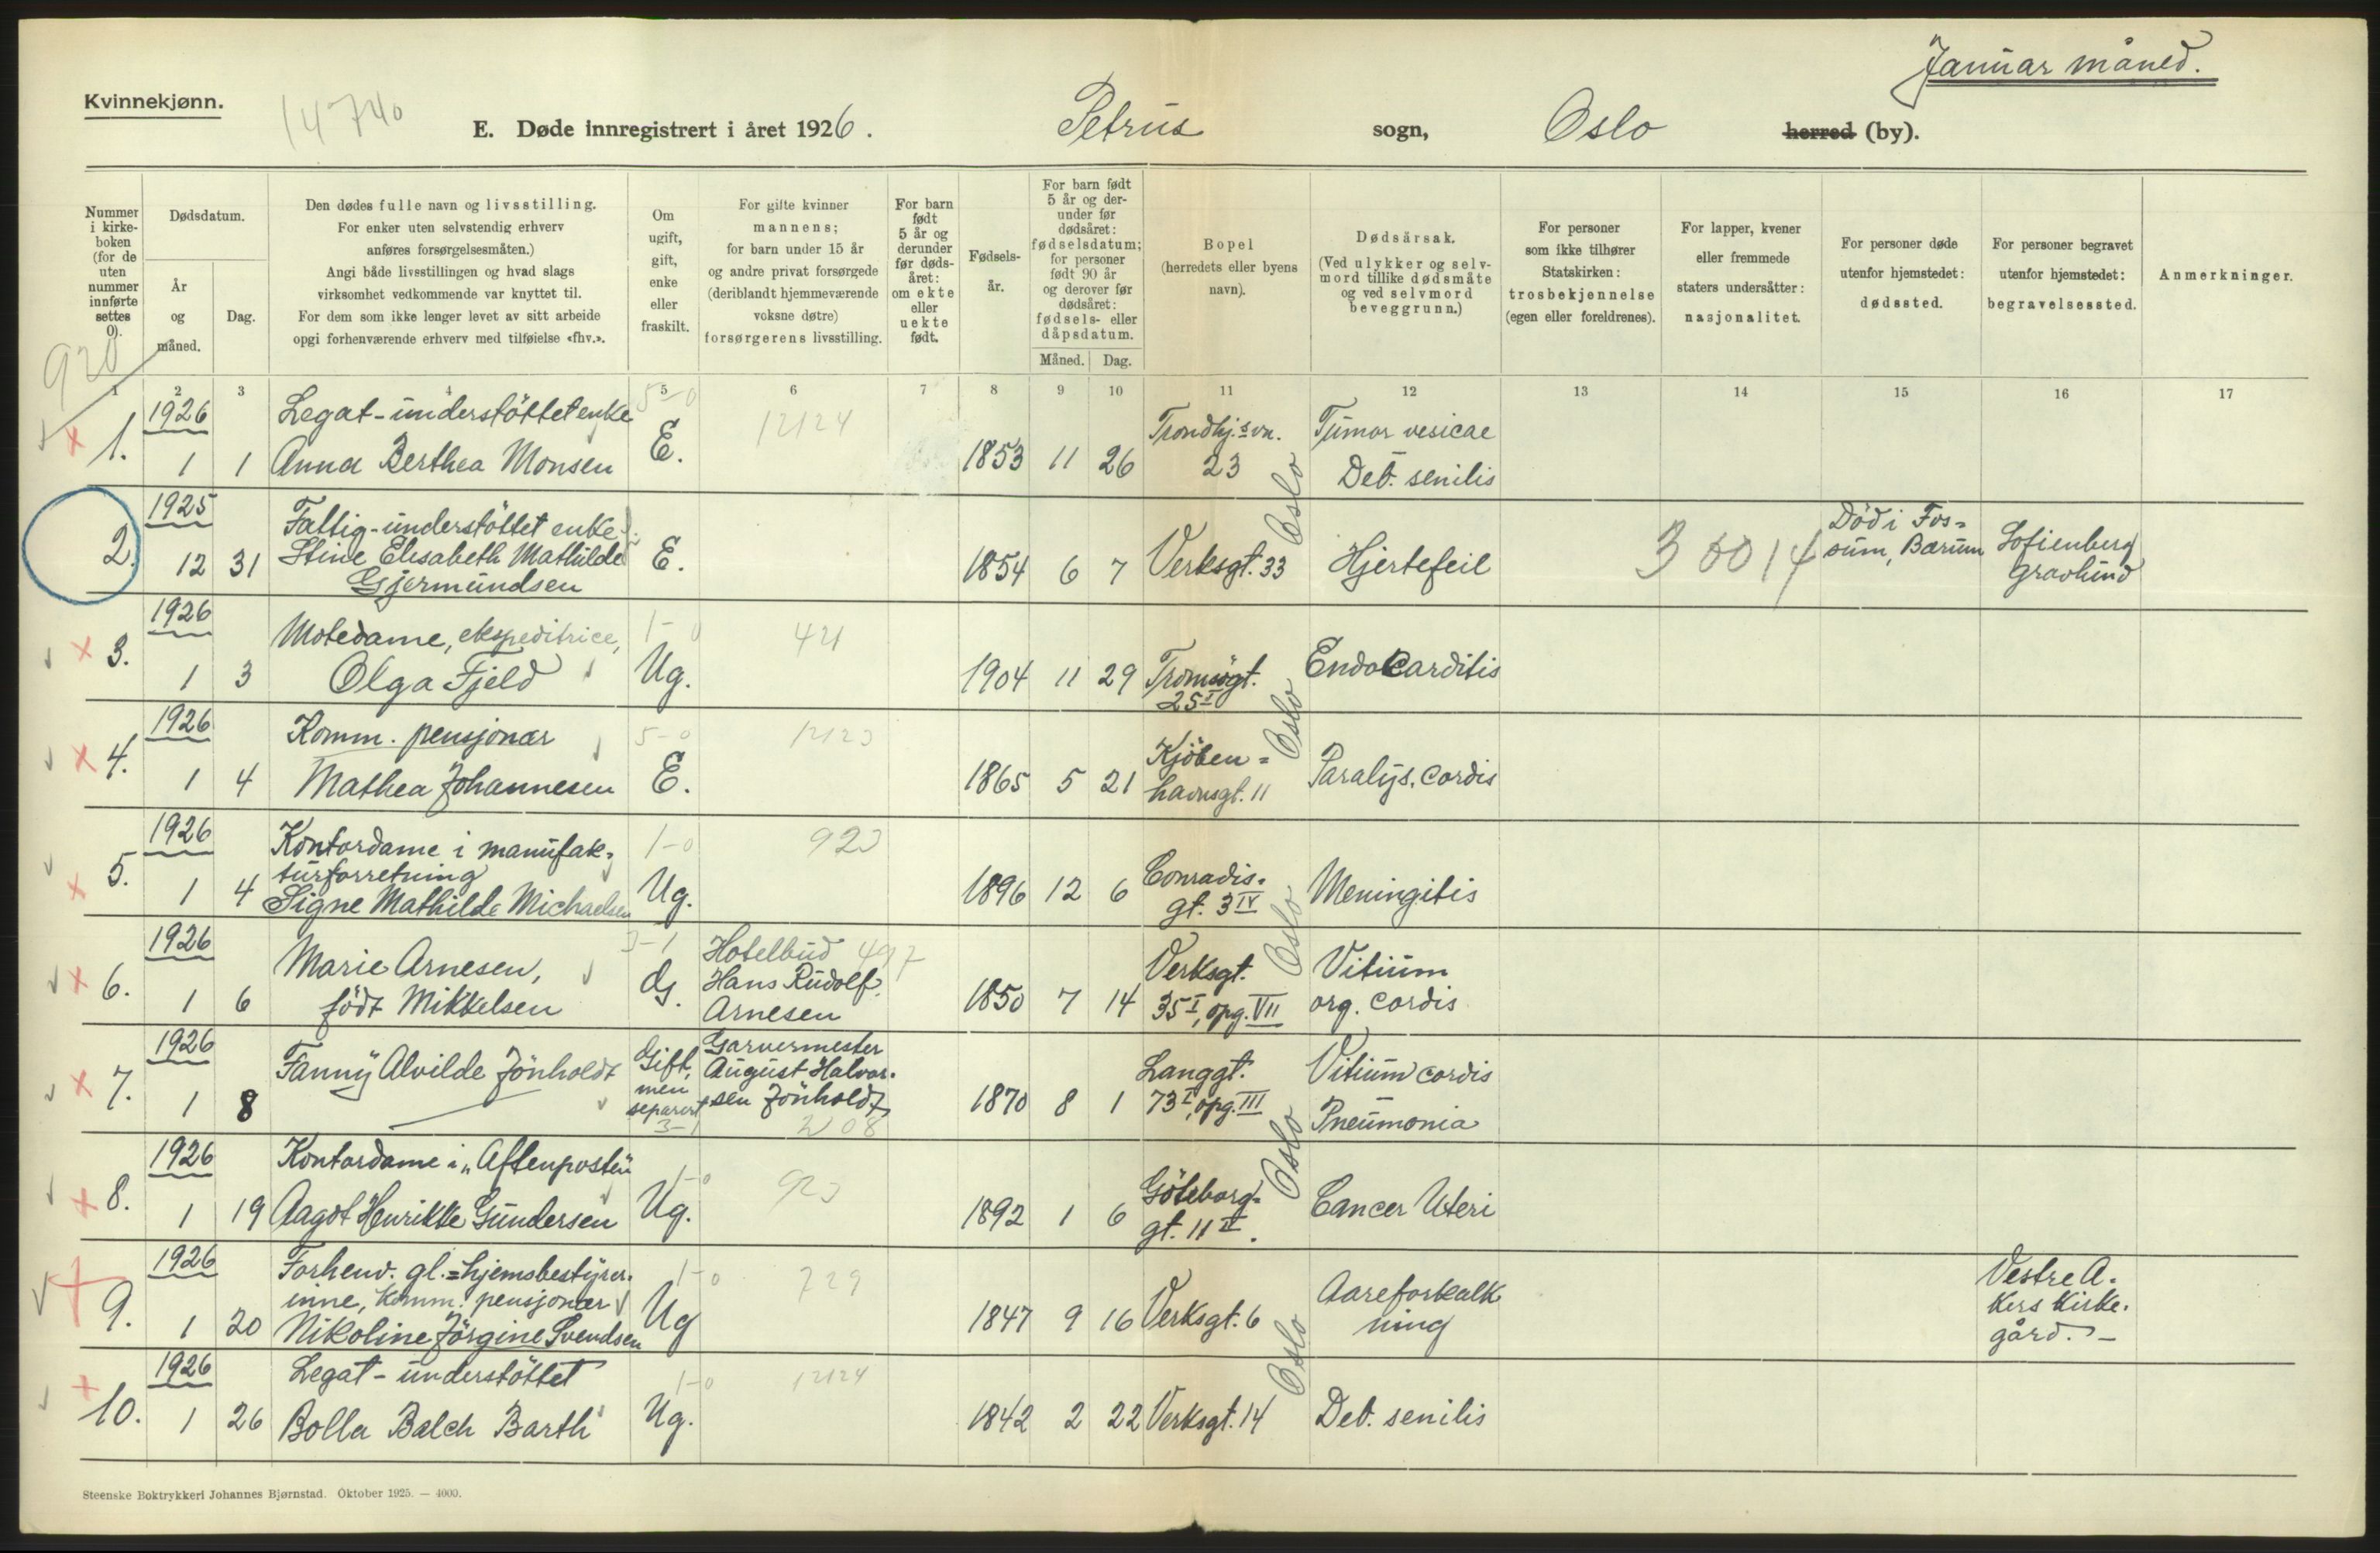 Januar måned.
Kvinnekjønn.
14740
E. Døde innregistrert i året 1926. Petrus sogn, Oslo herred (by).
Nummer i kirke-boken (for de uten nummer innførte settes 0).
Dødsdatum.
År og måned.
Dag.
Den dødes fulle navn og livsstilling.
For enker uten selvstendig erhverv
anføres forsørgelsesmåten.)
Angi både livsstillingen og hvad slags
virksomhet vedkommende var knyttet til.
For dem som ikke lenger levet av sitt arbeide
opgi forhenværende erhverv med tilføielse «fhv.».
Om ugift, gift, enke eller fraskilt.
For gifte kvinner
mannens;
for barn under 15 år
og andre privat forsørgede
(deriblandt hjemmeværende
voksne døtre)
forsørgerens livsstilling.
For barn født 5 år og derunder før døds-året: om ekte eller uekte født.
Fødsels-år.
For barn født 5 år og der-under før dødsåret: fødselsdatum; for personer født 90 år og derover før dødsåret: fødsels- eller dåpsdatum.
Måned. Dag.
Bopel
(herredets eller byens
navn).
Dødsårsak.
(Ved ulykker og selv-
mord tillike dødsmåte
og ved selvmord
beveggrunn.)
For personer
som ikke tilhører
Statskirken:
trosbekjennelse
(egen eller foreldrenes).
For lapper, kvener
eller fremmede
staters undersåtter:
nasjonalitet.
For personer døde
utenfor hjemstedet:
dødssted.
For personer begravet
utenfor hjemstedet:
begravelsessted.
Anmerkninger.
920
1 2 3 4 5 6 7 8 9 10 11 12 13 14 15 16 17
1. 1926 1 1
Legat-understöttet enke
Anna Berthea Monsen
5-0
E.
12124
1853 11 26
Trondhj.svn.
23
Oslo
Tumor vesicae
Deb. senilis
2. 1925 12 31
Fattig-understöttet enke
Stine Elisabeth Mathilde
Gjermundsen
E.
1854 6 7
Verksgt. 33
Hjertefeil
30014
Död i Fos=
sum, Bærum
Sofienberg
gravlund
3. 1926 1 3
Motedame, ekspeditrice,
Olga Fjeld
1-0
Ug.
421
1904 11 29
Tromsögt.
25 I
Oslo
Endocarditis
4. 1926 1 4
Komm. pensjonær
Mathea Johannesen
5-0
E.
12123
1865 5 21
Kjöben=
havnsgt. 11
Paralys. cordis
5. 1926 1 4
Kontordame i manufak=
turforretning
Signe Mathilde Michaelsen
1-0
Ug.
923
1896 12 6
Conradis=
gt. 3 IV
Oslo
Meningitis
6. 1926 1 6
Marie Arnesen,
födt Mikkelsen
3-1
G.
Hotelbud 497
Hans Rudolf
Arnesen
1850 7 14
Verksgt.
35 I, opg. VII
Vitium
org. cordis
7. 1926 1 8
Fanny Alvilde Jönholdt
Gift,
men
separert
3-1
Garvermester
August Halvor=
sen Jönholdt
208
1870 8 1
Langgt.
73 I, opg. III
Oslo
Vitium cordis
Pneumonia
8. 1926 1 19
Kontordame i „Aftenposten"
Aagot Henrikke Gundersen
1-0
Ug.
923
1892 1 6
Göteborg=
gt. 11 II.
Cancer Uteri
9. 1926 1 20
Forhenv. gl.=hjemsbestyrer=
inne, komm. pensjonær
Nikoline Jörgine Svendsen
1-0
Ug
729
1847 9 16
Verksgt. 6
Oslo
Aareforkalk
ning
Vestre A=
kers kirke=
gård. -
10. 1926 1 26
Legat-understöttet
Bolla Balch Barth
1-0
Ug.
12124
1842 2 22
Verksgt. 14
Deb. senilis
Steenske Boktrykkeri Johannes Bjørnstad. Oktober 1925. — 4000.